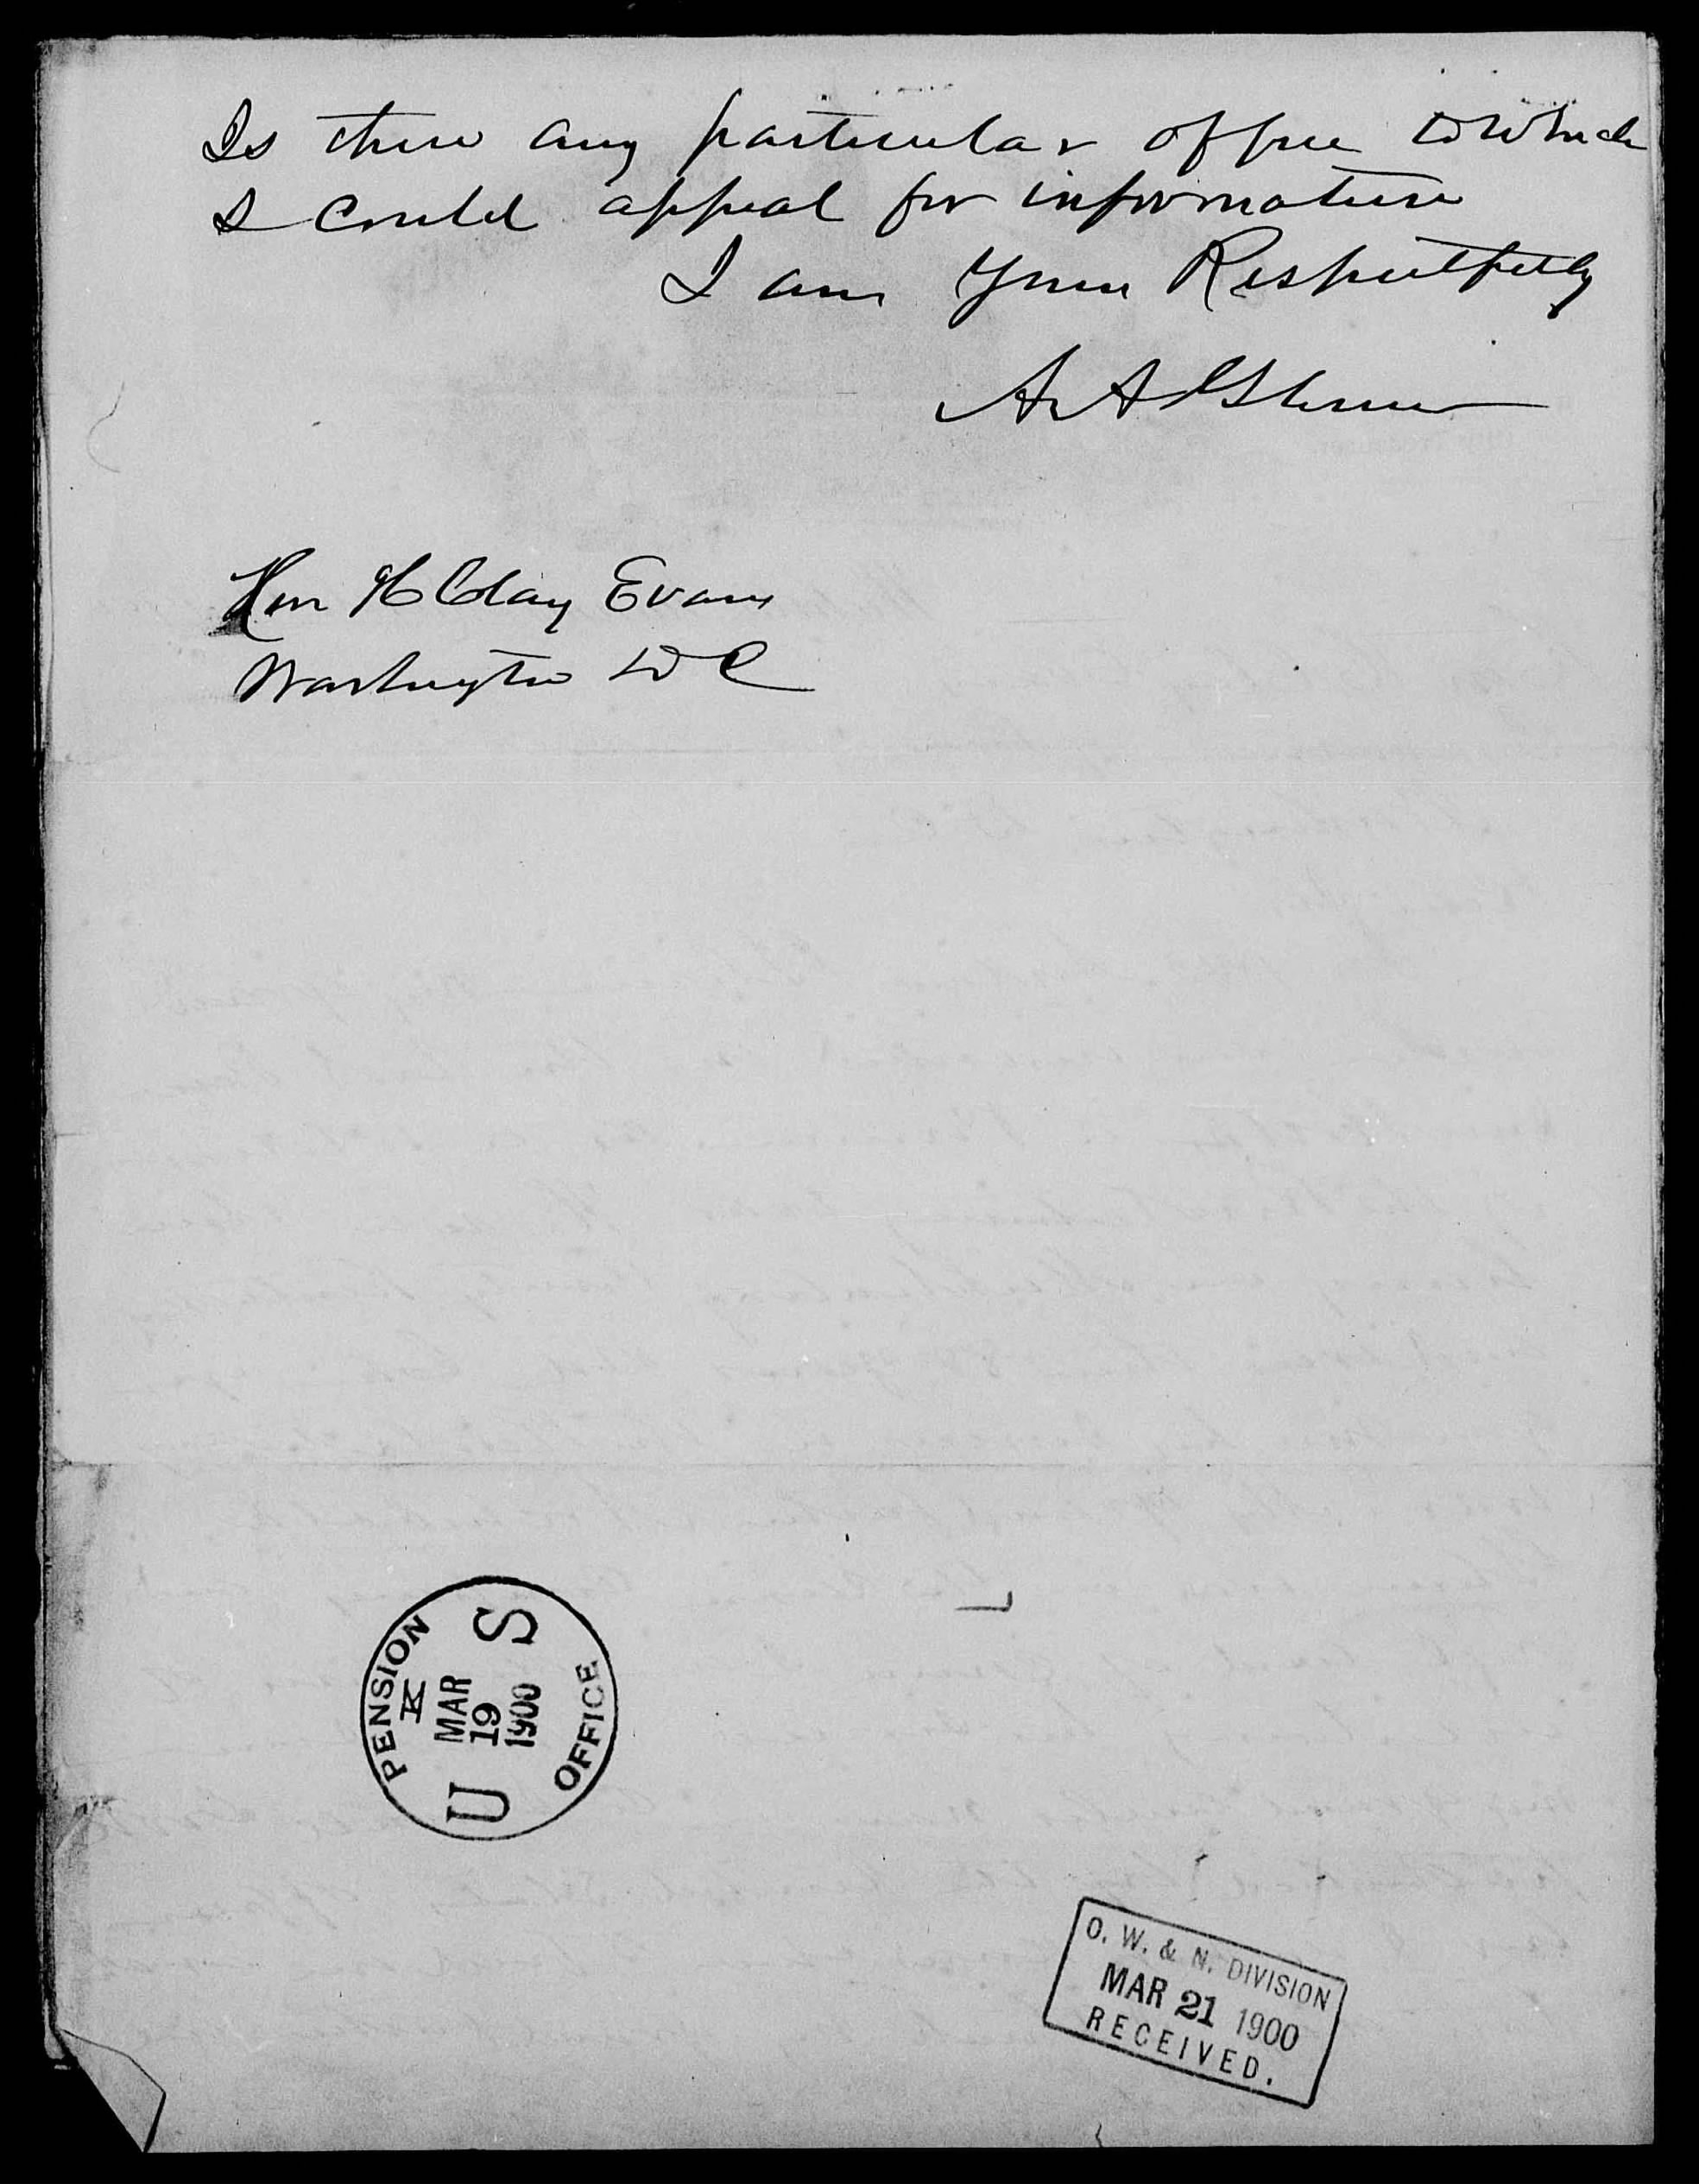 Is there any particular office to which
I could appeal for information
I am Your Respectfully
A A
Hon H Clay Evans
Washington D C
U S
PENSION
K
MAR
19
1900
OFFICE
O. W. & N. DIVISION
MAR 21 1900
RECEIVED.